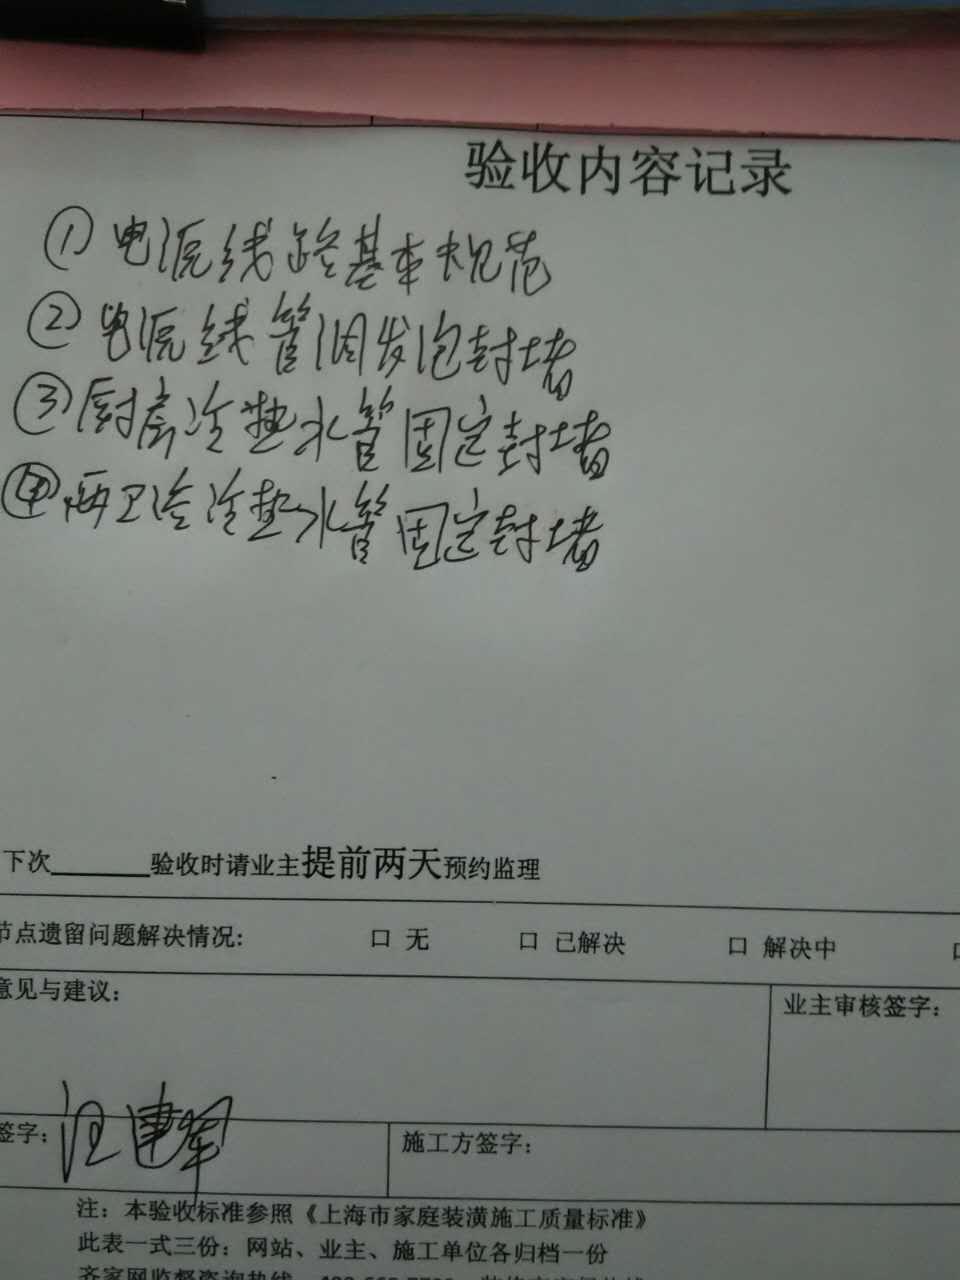 验收内容记录
①电源线路基本规范
②电源线管用发泡封堵
③厨房冷热水管固定封堵
④两卫冷冷热水管固定封堵
下次 验收时请业主提前两天预约监理
节点遗留问题解决情况: □ 无 □ 已解决 □ 解决中 □
意见与建议:
业主审核签字:
签字: 汪建军
施工方签字:
注: 本验收标准参照《上海市家庭装潢施工质量标准》
此表一式三份: 网站、业主、施工单位各归档一份
齐家网监督咨询热线